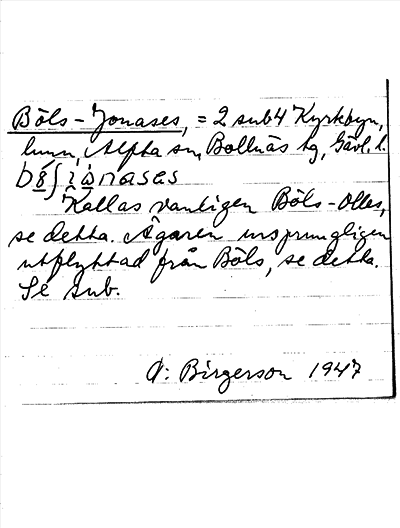 Böls-Jonases, = 2 sub 4 Kyrkbyn,
hmn, Alfta sn, Bollnäs tg, Gävl. l.
Kallas vanligen Böls-Olles,
se detta. Ägaren ursprungligen
utflyttad från Böls, se detta.
Se sub.
O: Birgerson 1947